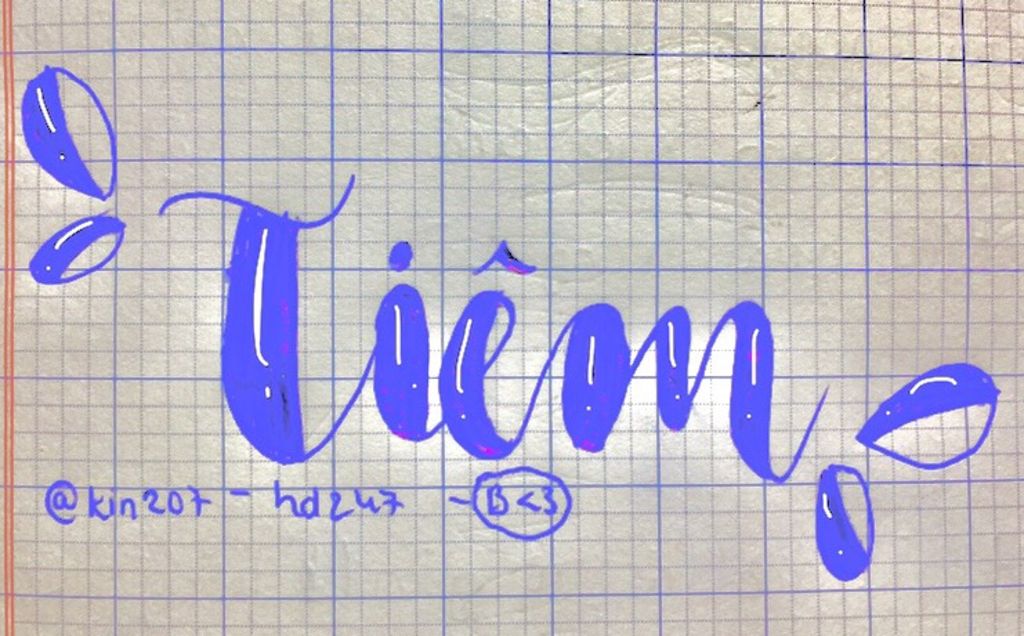 Tiêm
@kin207 - hd247 - B<3